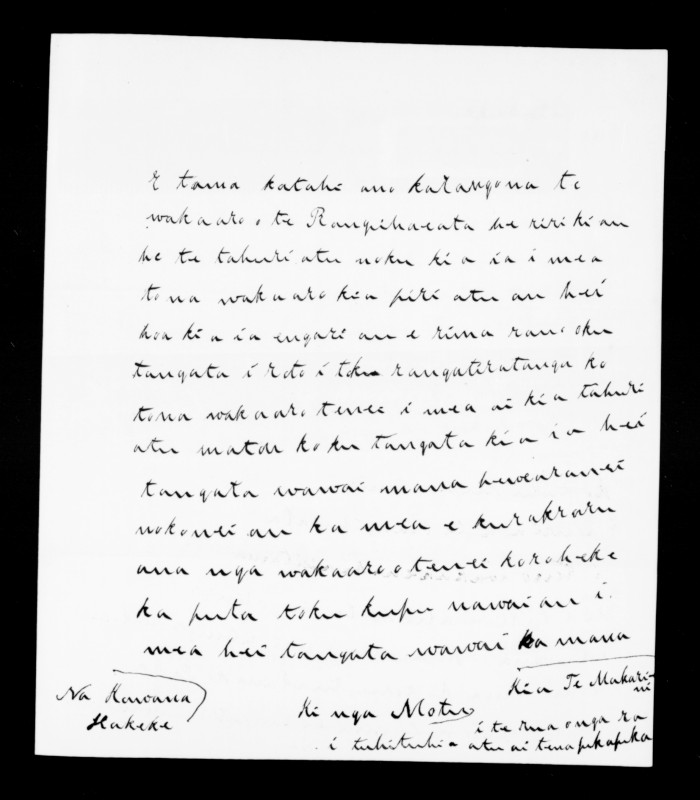 E tama katahi ano karangona te
wakaaro o te Rangihaeata he ririki au
he te tahuri atu noku ki a ia i mea
tona wakaaro kia piri atu au hei
hoa ki a ia engari au e rima rau o oku
tangata i roto i toku rangatiratanga ko
tona wakaaro tenei i mea ai kia tahuri
atu matou ko ku tangata ki a ia hei
tangata wawai mana
nokonei au ka mea e kurakraru
ana nga wakaaro o tenei koroheke
ka puta toku kupu nawai au i
mea hei tangata wawai ka mana
Kia Te Makari-
ni
Na Kawana
Hakeke
Ki nga Motu
i te rua o nga ra
i tuhituhia atu ai tena pukapuka